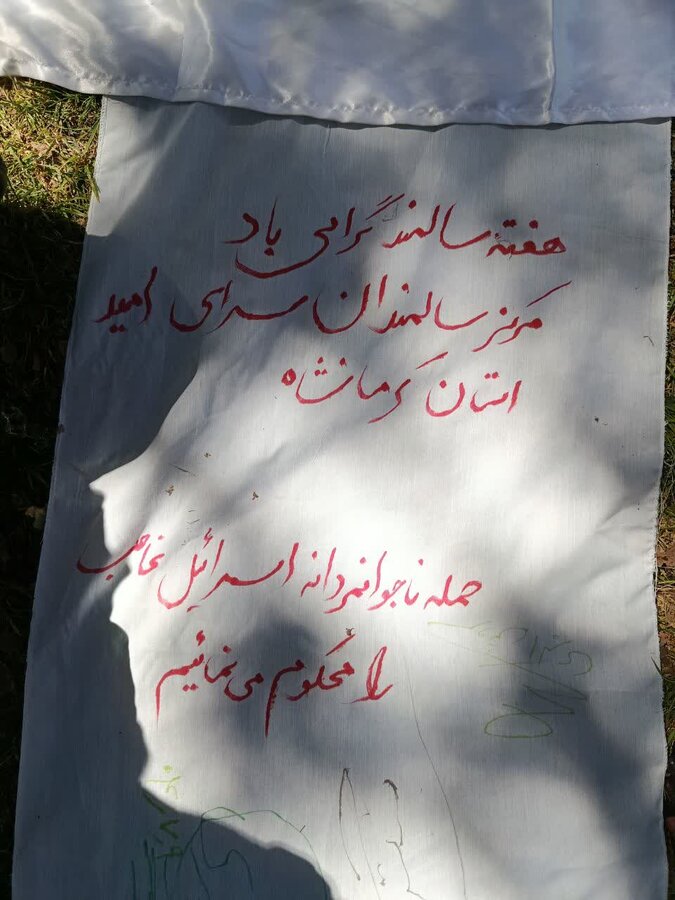 هفته سالمند گرامی باد
مرکز سالمندان سرای امید
استان کرمانشاه
حمله ناجوانمردانه اسرائیل غاصب
را محکوم می نمائیم